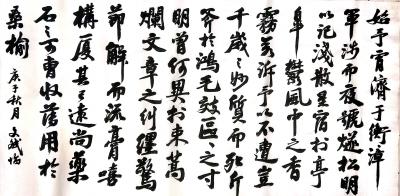 始予宵濟于衡漳
軍涉而夜號燧松明
以記淺散星宿于亭
皋鬱風中之香
霧若訴予以不遭豈
千歲之妙質而死斤
斧於鴻毛效區區之寸
明曾何異於束蒿
爛文章之糾纏驚
節解而流膏嗟
構廈其已遠尚藥
石之可曹收薄用於
桑榆 庚子秋月